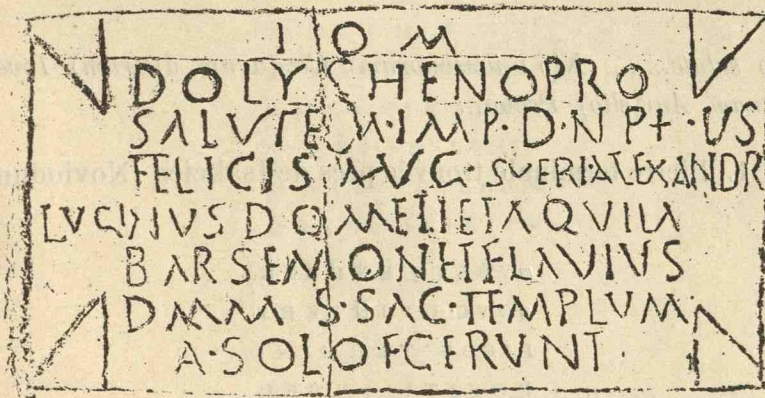 I O M
DOLYCHENO PRO
SALVTEM·IMP·D·N P+·US
FELICIS AVG SEVERI·ALEXANDR
LVCIVIUS DOMETI ET AQVILA
BARSEMON ET FLAVIUS
DMM S·SAC·TEMPLUM·
A·SOLO FCERVNT·